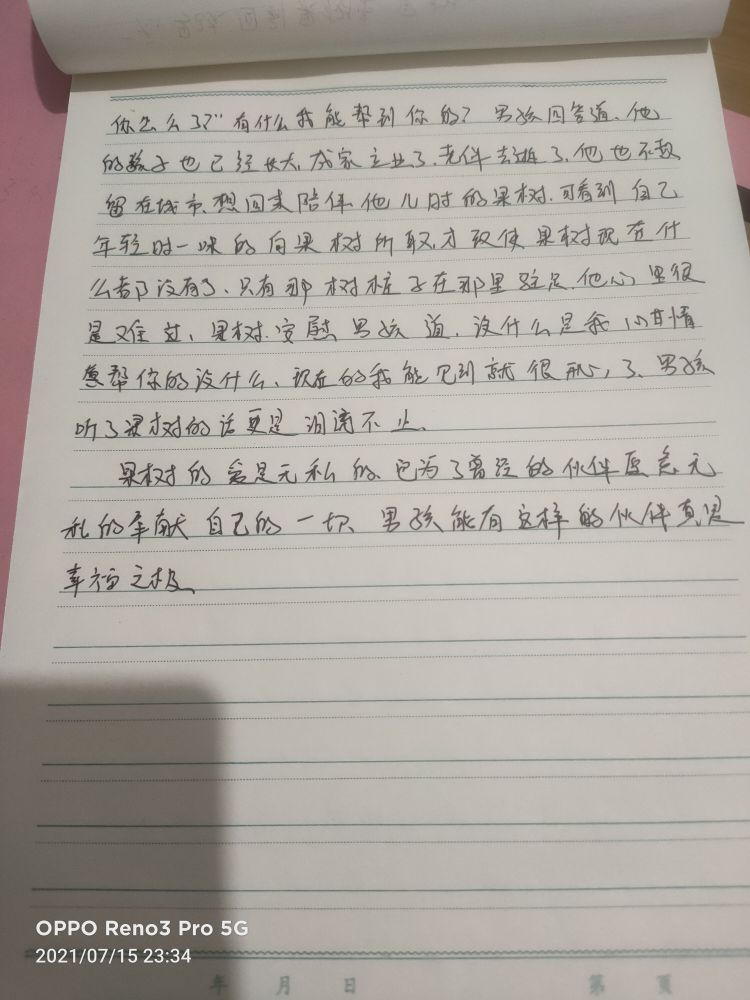 你怎么了?"有什么我能帮到你的?男孩回答道、他
的孩子也已经长大,成家立业了.老伴去逝了.他也不想
留在城市.想回来陪伴他儿时的果树.可看到自己
年轻时一味的向果树所取,才致使果树现在什
么都没有了、只有那树桩子在那里驻足.他心里很
是难过、果树安慰男孩道.没什么是我心甘情
愿帮你的没什么、现在的我能见到就很开心了、男孩
听了果树的话更是泪涕不止、
果树的爱是无私的、它为了曾经的伙伴愿意无
私的奉献自己的一切、男孩能有这样的伙伴真是
幸福之极、
OPPO Reno3 Pro 5G
2021/07/15 23:34
年 月 日 第 頁